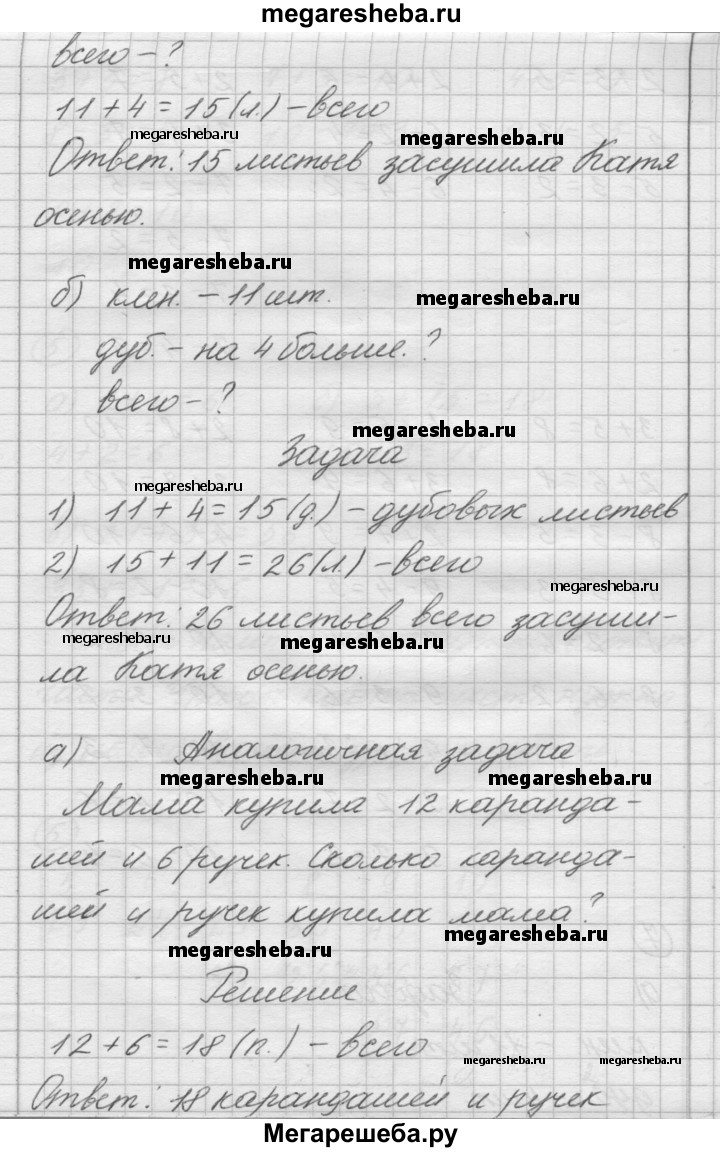 megaresheba.ru
всего - ?
11 + 4 = 15 (л.) - всего
megaresheba.ru megaresheba.ru
Ответ: 15 листьев засушила Катя
осенью.
megaresheba.ru
б) клен. - 11 шт. megaresheba.ru
дуб. - на 4 больше. ?
всего - ?
megaresheba.ru
Задача
megaresheba.ru
1) 11 + 4 = 15 (д.) - дубовых листьев
2) 15 + 11 = 26 (л.) - всего
megaresheba.ru
Ответ: 26 листьев всего засуши-
megaresheba.ru megaresheba.ru
ла Катя осенью.
а) Аналогичная задача
megaresheba.ru megaresheba.ru
Мама купила 12 каранда-
шей и 6 ручек. Сколько каранда-
шей и ручек купила мама?
megaresheba.ru
megaresheba.ru
Решение
12 + 6 = 18 (п.) - всего
megaresheba.ru megaresheba.ru
Ответ: 18 карандашей и ручек
Мегарешеба.ру